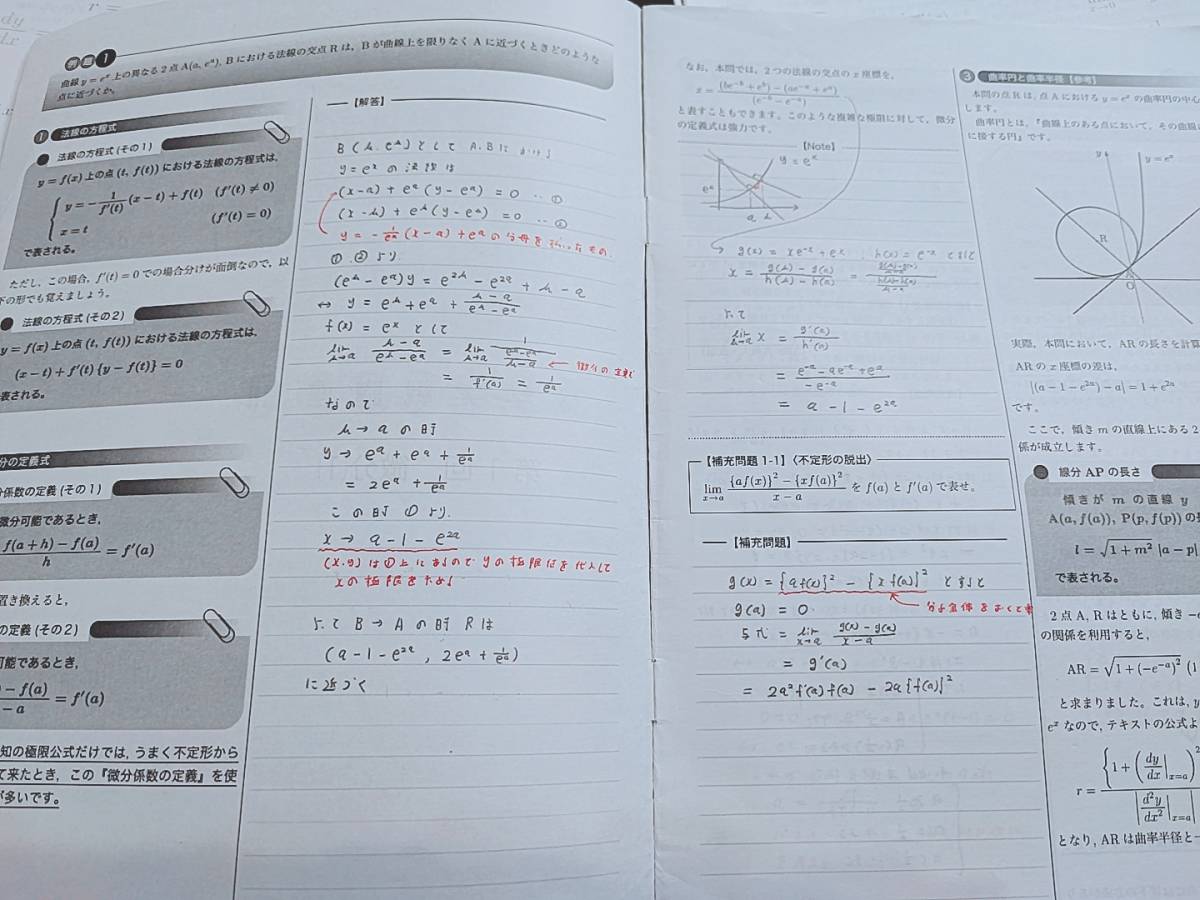 例題 1
曲線 y = e^x 上の異なる2点 A(a, e^a), B における法線の交点 R は, B が曲線上を限りなく A に近づくときどのような
点に近づくか。
① 法線の方程式
● 法線の方程式 (その1)
y = f(x) 上の点 (t, f(t)) における法線の方程式は,
y = -1/f'(t) (x - t) + f(t) (f'(t) ≠ 0)
x = t (f'(t) = 0)
で表される。
ただし, この場合, f'(t) = 0 での場合分けが面倒なので, 以
下の形でも覚えましょう。
● 法線の方程式 (その2)
y = f(x) 上の点 (t, f(t)) における法線の方程式は,
(x - t) + f'(t){y - f(t)} = 0
表される。
分の定義式
分係数の定義 (その1)
微分可能であるとき,
f(a+h) - f(a) / h = f'(a)
置き換えると,
の定義 (その2)
可能であるとき,
) - f(a) / - a = f'(a)
知の極限公式だけでは, うまく不定形から
て来たとき, この『微分係数の定義』を使
が多いです。
【解答】
B (h, e^h) として A, B における
y = e^x の法線は
(x-a) + e^a (y - e^a) = 0 … ①
(x-h) + e^h (y - e^h) = 0 … ②
y = -1/e^a (x-a) + e^a の分母を払ったもの
① ② より
(e^h - e^a) y = e^{2h} - e^{2a} + h - a
⇔ y = e^h + e^a + (h-a)/(e^h - e^a)
f(x) = e^x として
lim h→a (h-a)/(e^h - e^a) = lim h→a 1/((e^h - e^a)/(h-a)) ← 微分の定義
= 1/f'(a) = 1/e^a
なので
h → a の時
y → e^a + e^a + 1/e^a
= 2e^a + 1/e^a
この時 ① より,
x → a - 1 - e^{2a}
(x, y) は①上にあるので yの極限値を代入して
xの極限を求める
よって B → A の時 R は
(a - 1 - e^{2a}, 2e^a + 1/e^a)
に近づく
なお, 本問では, 2つの法線の交点の x 座標を,
x = ((be^{-b} + e^b) - (ae^{-a} + e^a)) / (e^{-b} - e^{-a})
と表すこともできます。このような複雑な極限に対して, 微分
の定義式は強力です。
【Note】
y = e^x
e^a
a h
g(x) = xe^{-x} + e^x, h(x) = e^{-x} とすると
x = (g(h) - g(a))/(h(h) - h(a)) = ((g(h) - g(a))/(h-a))/((h(h) - h(a))/(h-a))
よって
lim h→a x = g'(a)/h'(a)
= (e^{-a} - ae^{-a} + e^a)/(-e^{-a})
= a - 1 - e^{2a}
【補充問題 1-1】〈不定形の脱出〉
lim x→a ({af(x)}² - {xf(a)}²)/(x - a) を f(a) と f'(a) で表せ。
【補充問題】
g(x) = {a f(x)}² - {x f(a)}² とすると
分子全体をおくて
g(a) = 0
与式 = lim x→a (g(x) - g(a))/(x - a)
= g'(a)
= 2a² f'(a) f(a) - 2a {f(a)}²
③ 曲率円と曲率半径【参考】
本問の点 R は, 点 A における y = e^x の曲率円の中心
します。
曲率円とは, 『曲線上のある点において, その曲線
に接する円』です。
y
y = e^x
R
O
実際, 本問において, AR の長さを計算
AR の x 座標の差は,
|(a - 1 - e^{2a}) - a| = 1 + e^{2a}
です。
ここで, 傾き m の直線上にある2
係が成立します。
● 線分 AP の長さ
傾きが m の直線 y
A(a, f(a)), P(p, f(p)) の
l = √(1 + m²) |a - p|
で表される。
2点 A, R はともに, 傾き -e
の関係を利用すると,
AR = √(1 + (-e^{-a})²) (1
と求まりました。これは, y
e^x なので, テキストの公式よ
r = {1 + (dy/dx |x=a)² / |d²y/dx² |x=a|
となり, AR は曲率半径と一